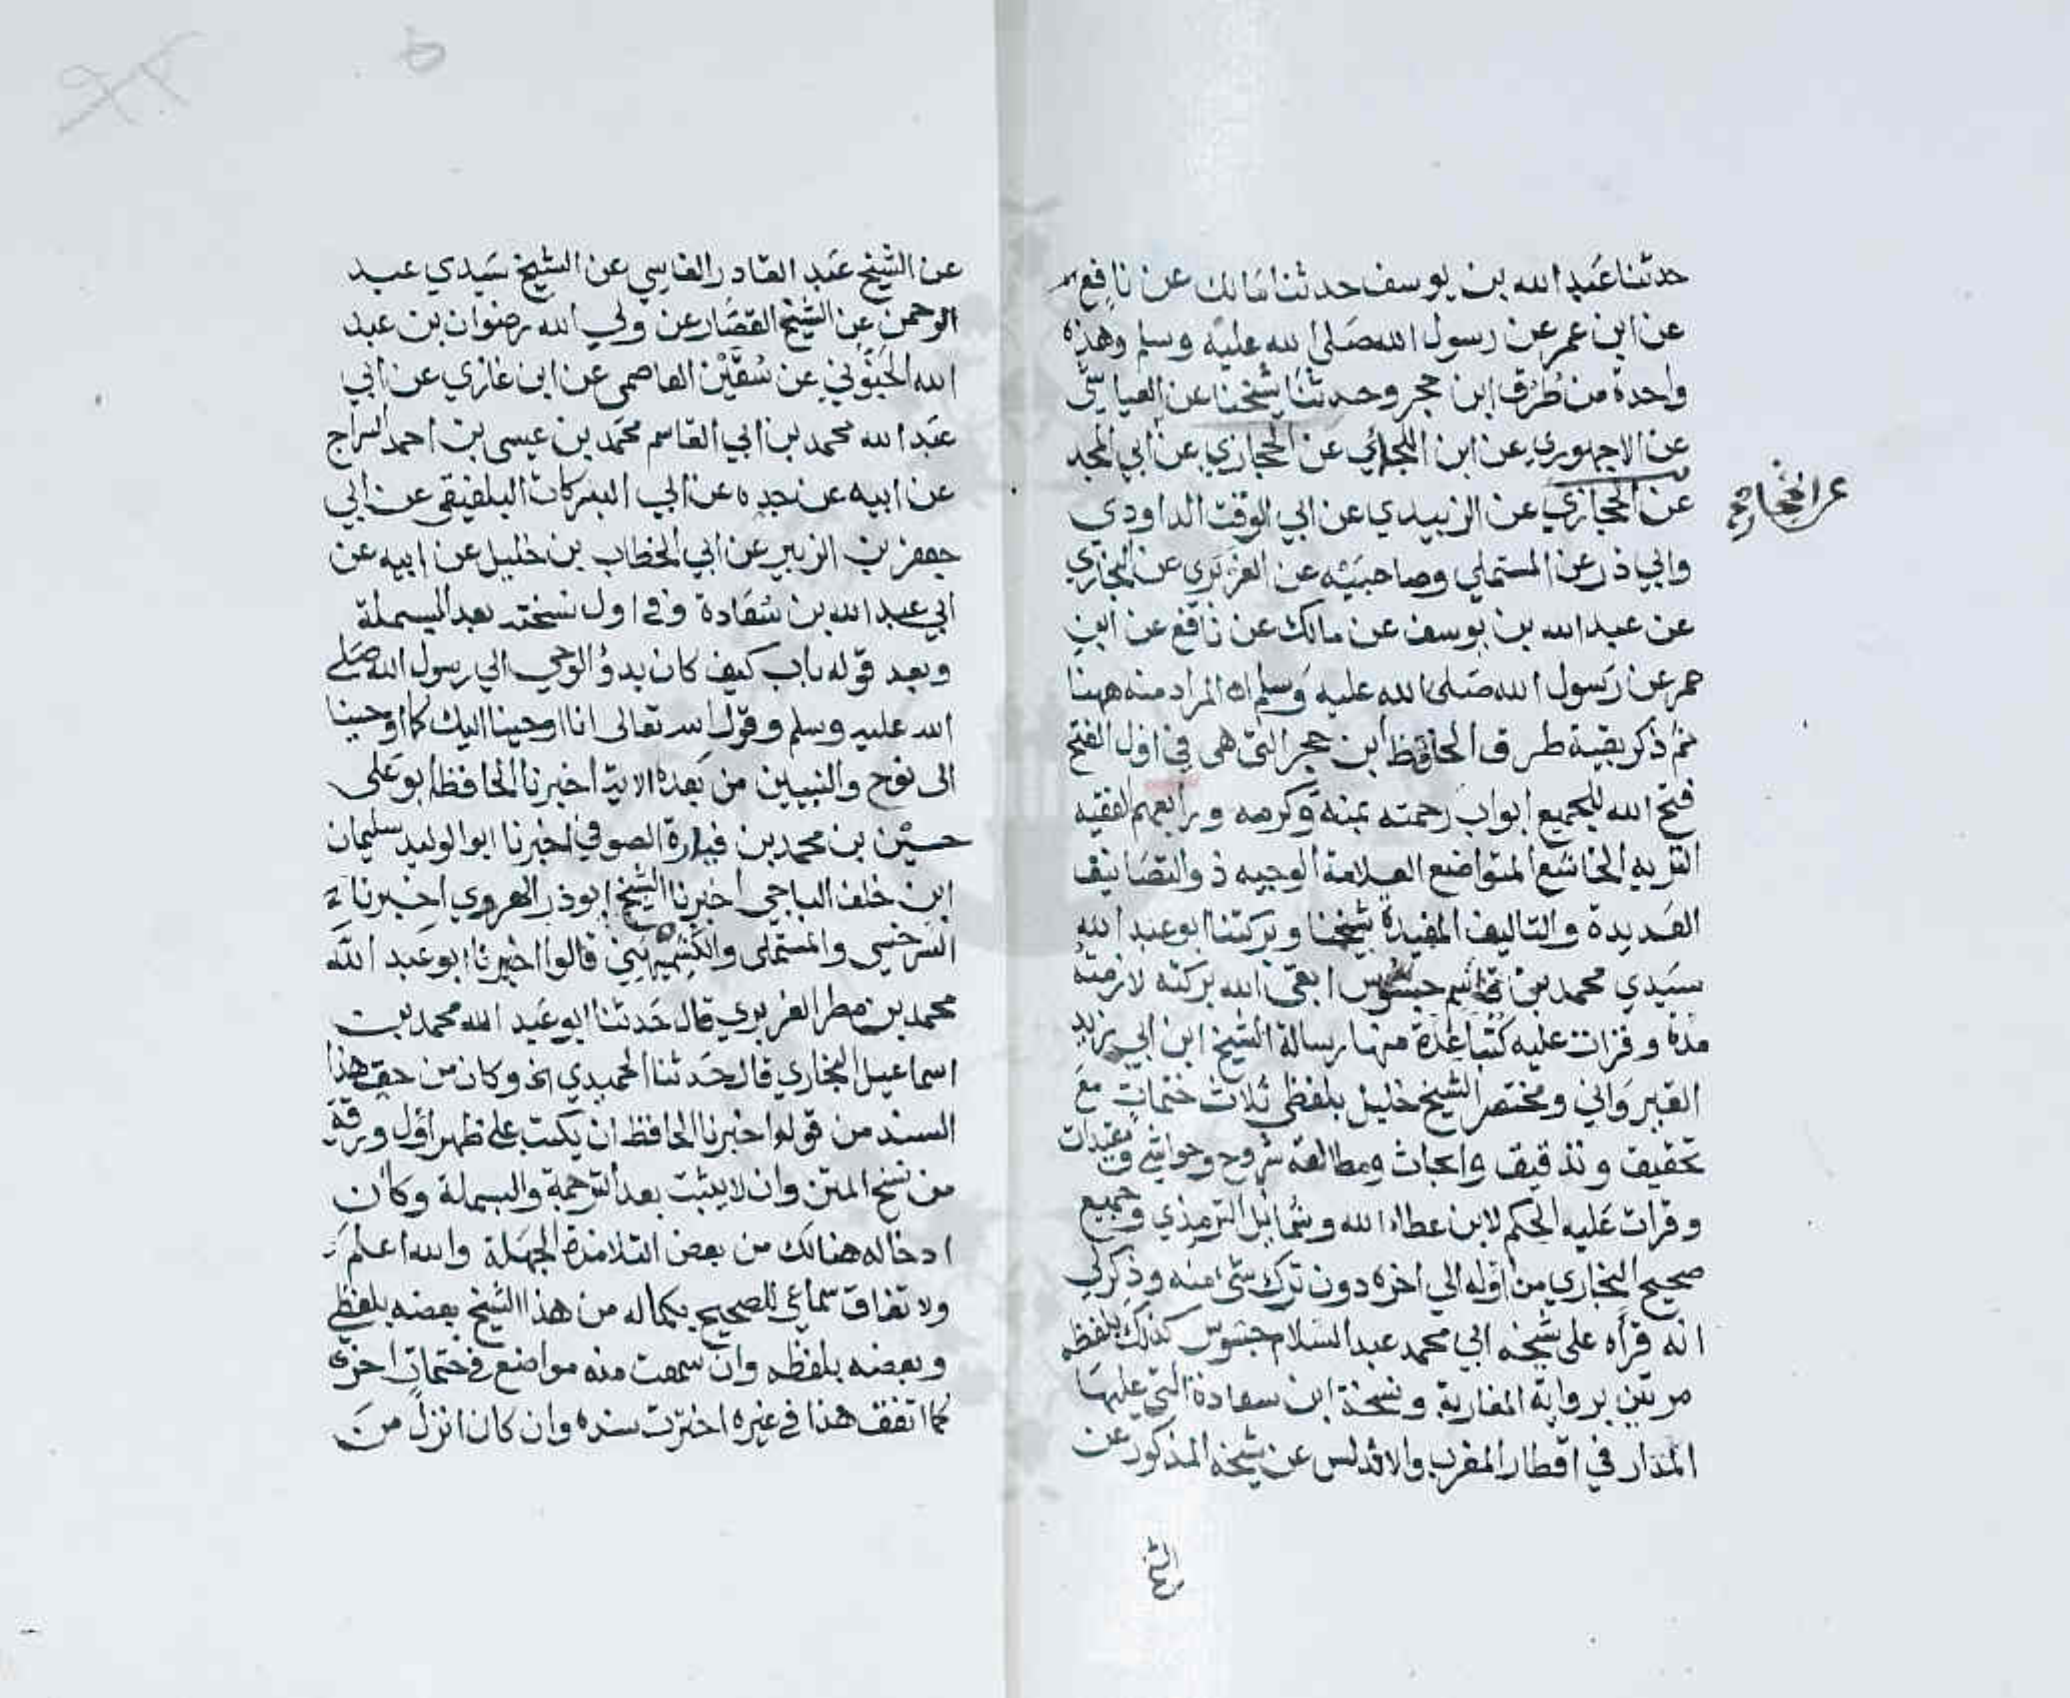 حدثنا عبد الله بن يوسف حدثنا مالك عن نافع
عن ابن عمر عن رسول الله صلى الله عليه وسلم وهذه
واحدة من طرق ابن حجر وحدثنا شيخنا عن العياشي
عن الاجهوري عن ابن الجائي عن الحجازي عن ابي المجد
عن الحجازي عن الزبيدي عن ابي الوقت الداودي
وابي ذر عن المستملي وصاحبيه عن الفربري عن البخاري
عن عبد الله بن يوسف عن مالك عن نافع عن ابن
عمر عن رسول الله صلى الله عليه وسلم اه المراد منه ههنا
ثم ذكر بقية طرق الحافظ ابن حجر التي هي في اول الفتح
فتح الله للجميع ابواب رحمته بمنه وكرمه ورابعهم الفقيه
النزيه الخاشع المتواضع العلامة الوجيه ذو التصانيف
العديدة والتاليف المفيدة شيخنا وبركتنا ابو عبد الله
سيدي محمد بن قاسم جسوس ابقى الله بركته لازمته
مدة وقرات عليه كتبا عدة منها رسالة الشيخ ابن ابي زيد
القيرواني ومختصر الشيخ خليل بلفظي ثلاث ختمات مع
تحقيق وتدقيق وابحاث ومطالعة شروح وحواشي وتقييدات
وقرات عليه الحكم لابن عطاء الله وشمائل الترمذي وجميع
صحيح البخاري من اوله الى اخره دون ترك شئ منه وذكر لي
انه قرأه على شيخه ابي محمد عبد السلام جسوس كذلك بلفظه
مرتين برواية المغاربة ونسخة ابن سعادة التي عليها
المدار في اقطار المغرب والاندلس عن شيخه المذكور عن
عن الشيخ عبد القادر الفاسي عن الشيخ سيدي عبد
الرحمن عن الشيخ القصار عن ولي الله رضوان بن عبد
الله الجنوني عن سقين العاصمي عن ابن غازي عن ابي
عبد الله محمد بن ابي القاسم محمد بن عيسى بن احمد السراج
عن ابيه عن جده عن ابي البركات البلفيقي عن ابي
جعفر بن الزبير عن ابي الخطاب بن خليل عن ابيه عن
ابي عبد الله بن سعادة وفي اول نسخته بعد البسملة
وبعد قوله باب كيف كان بدؤ الوحي الي رسول الله صلى
الله عليه وسلم وقول الله تعالى انا اوحينا اليك كما اوحينا
الى نوح والنبيين من بعده الاية اخبرنا الحافظ ابو على
حسين بن محمد بن فيارة الصوفي اخبرنا ابو الوليد سليمان
ابن خلف الباجي اخبرنا الشيخ ابو ذر الهروي اخبرنا
السرخسي والمستملى والكشميهني قالوا اخبرنا ابو عبد الله
محمد بن مطر الفربري قال حدثنا ابو عبد الله محمد بن
اسماعيل البخاري قال حدثنا الحميدي الخ وكان من حق هذا
السند من قوله اخبرنا الحافظ ان يكتب على ظهر أول ورقة
من نسخ المتن وان لا يثبت بعد الترجمة والبسملة وكان
ادخاله هنالك من بعض التلامذة الجهلة والله اعلم
ولاتفاق سماعي للصحيح بكماله من هذا الشيخ بعضه بلفظي
وبعضه بلفظه وان سمعت منه مواضع في ختمات اخرى
كما اتفق هذا في غيره اخترت سنده وان كان انزل من